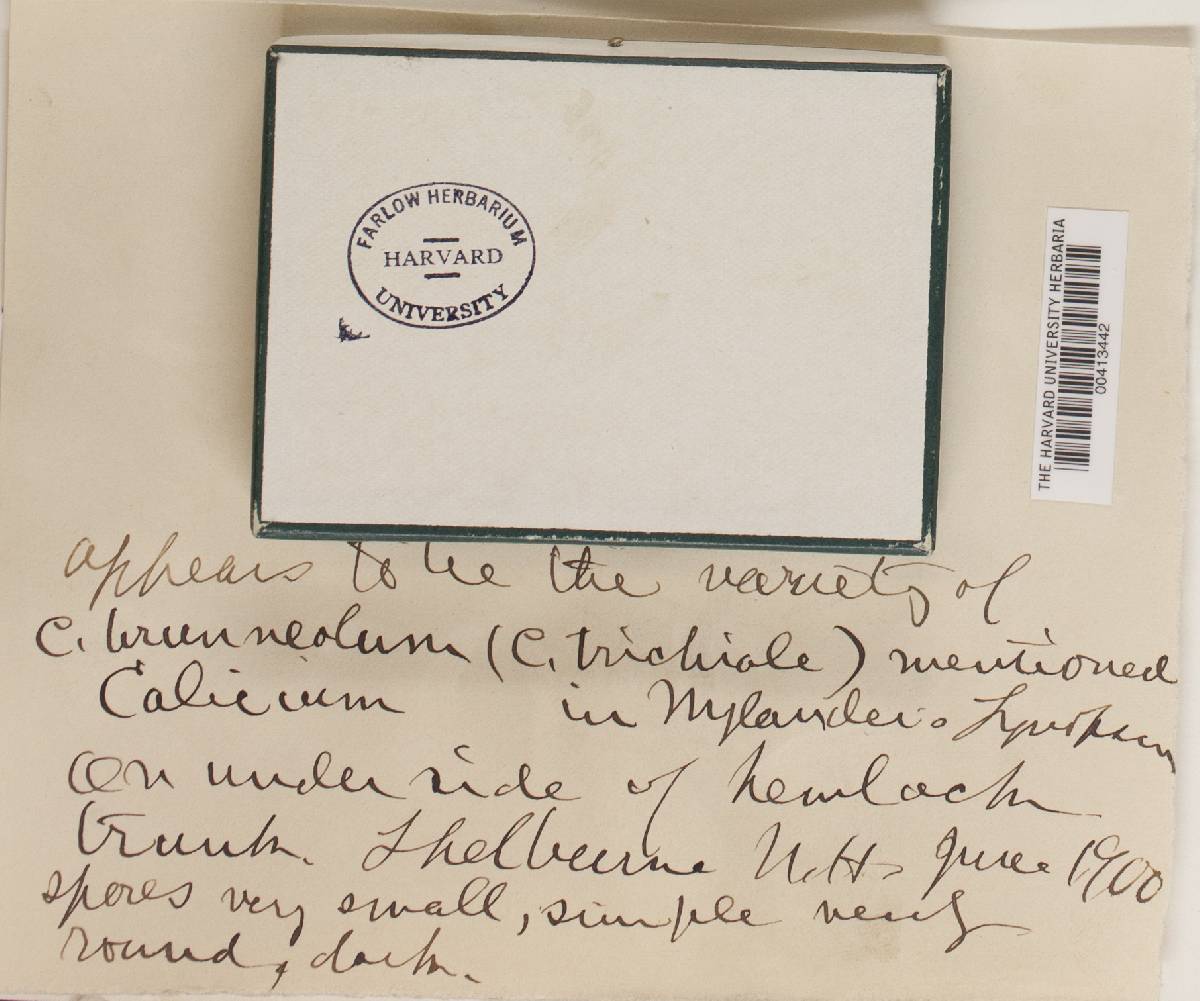 FARLOW HERBARIUM
HARVARD
UNIVERSITY
THE HARVARD UNIVERSITY HERBARIA
00413442
appears to be the variety of
C. brunneolum (C. trichiale) mentioned
Calicium in Nylander's Synopsis
On under side of hemlock
trunk. Shelburne N.H. June 1900
spores very small, simple nearly
round, dark.